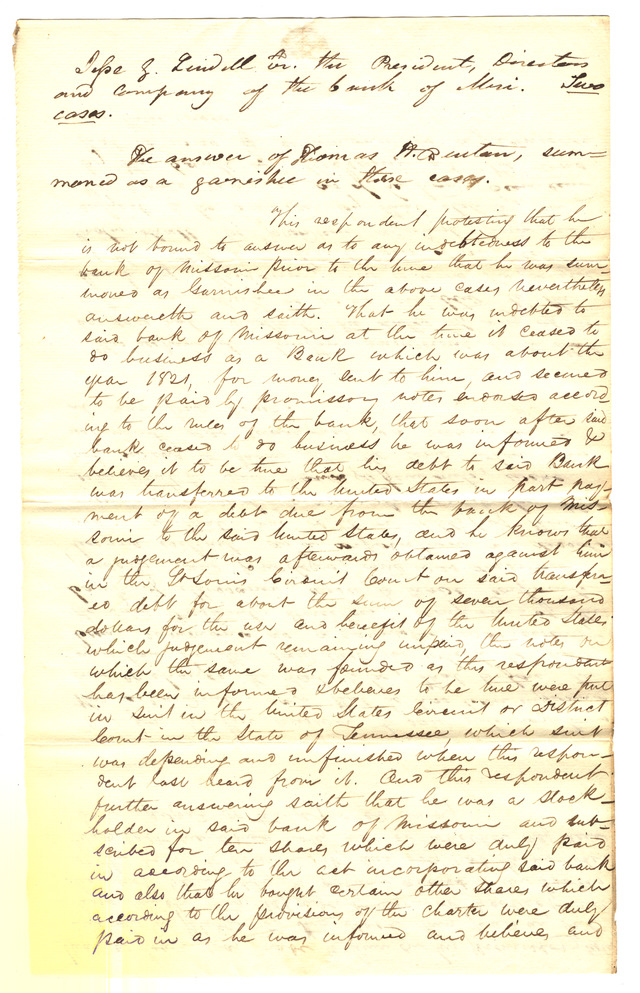 Jesse G. Lindell vs. the President, Directors
and company of the bank of Misri. Two
cases.
The answer of Thomas H. Benton, sum=
moned as a garnishee in these cases.
This respondent protesting that he
is not bound to answer as to any indebtedness to the
bank of Missouri prior to the time that he was sum=
moned as Garnishee in the above cases nevertheless
answereth and saith. That he was indebted to
said bank of Missouri at the time it ceased to
do business as a Bank which was about the
year 1821, for money lent to him, and secured
to be paid by promissory notes endorsed accord
ing to the rules of the bank, that soon after said
bank ceased to do business he was informed &
believes it to be true that his debt to said Bank
was transferred to the United States in part pay
ment of a debt due from the bank of Mis=
souri to the said United States, and he knows that
a judgement was afterwards obtained against him
in the St Louis Circuit Court on said transfer
ed debt for about the sum of seven thousand
dollars for the use and benefit of the United States
which judgement remaining unpaid, the notes on
which the same was founded as this respondent
has been informed & believes to be true were put
in suit in the United States Circuit or District
Court in the State of Tennessee, which suit
was depending and unfinished when this respon=
dent last heard from it. And this respondent
further answering saith that he was a stock=
holder in said bank of Missouri and sub=
scribed for ten shares which were duly paid
in according to the act incorporating said bank
and also that he bought certain other shares which
according to the provisions of the charter were duly
paid in as he was informed and believes and